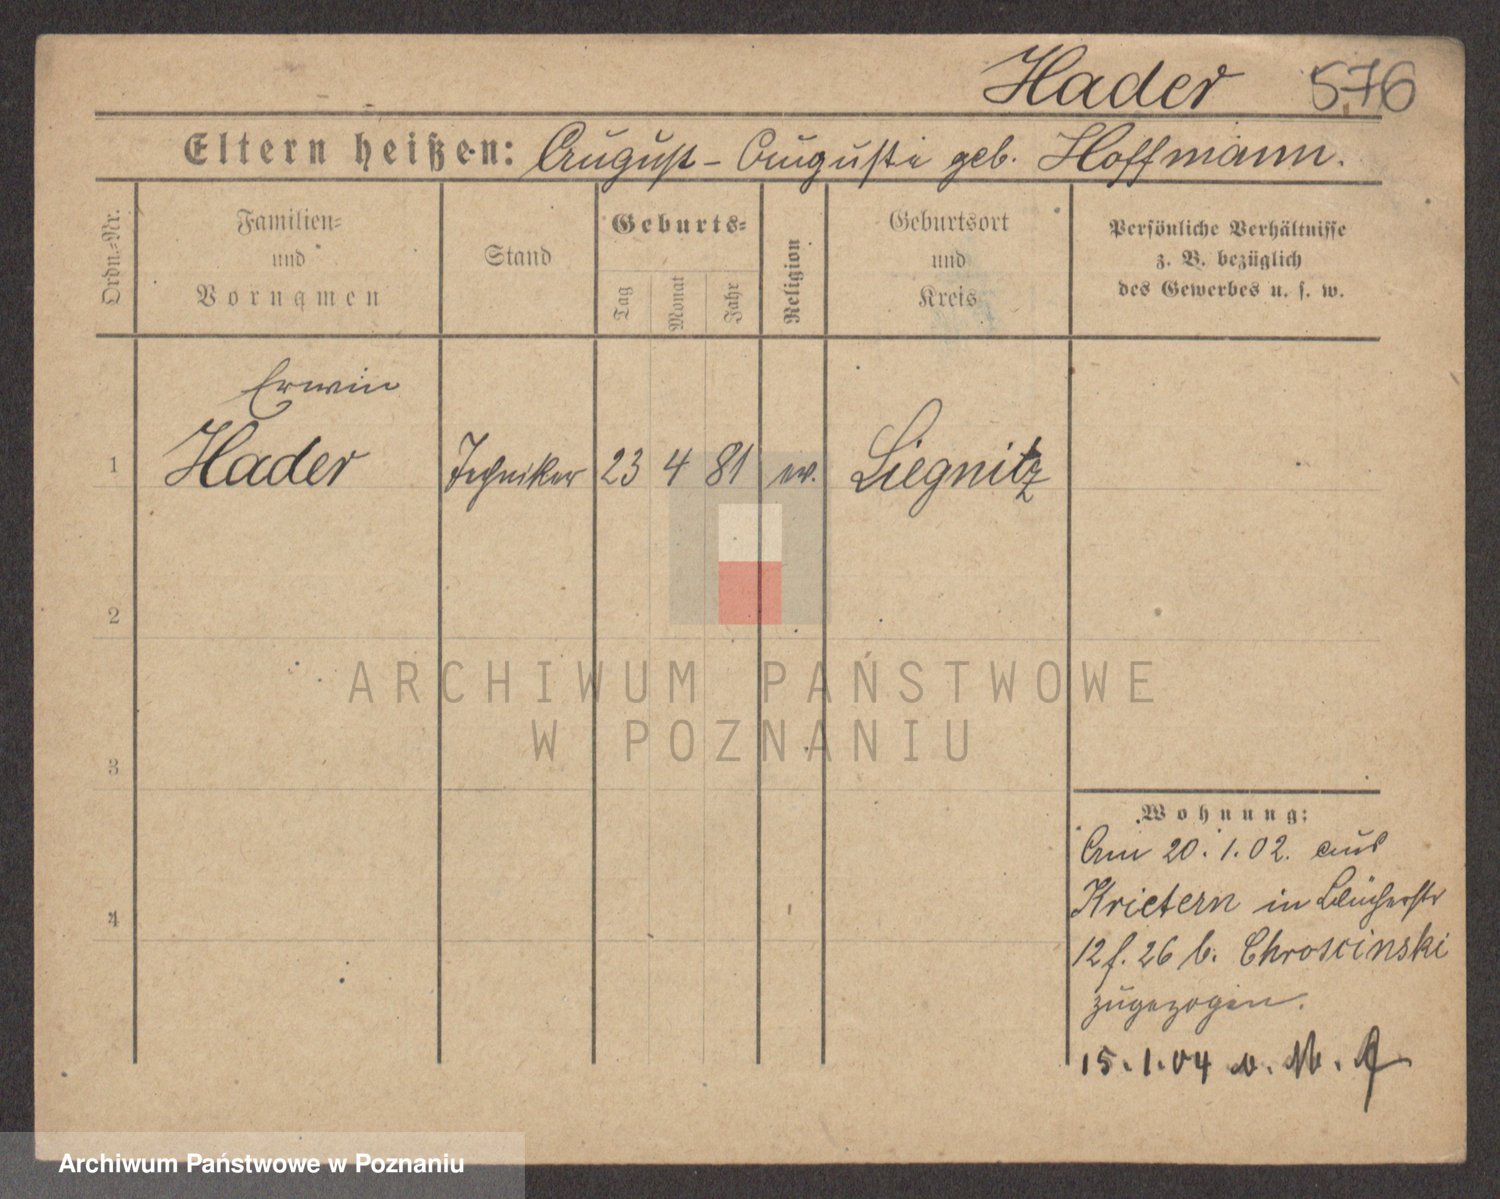 Hader 576
Eltern heißen: August – Auguste geb. Hoffmann.
Ordn.=Nr.
Familien=
und
Vornamen
Stand
Geburts=
Tag
Monat
Jahr
Religion
Geburtsort
und
Kreis
Persönliche Verhältnisse
z. B. bezüglich
des Gewerbes u. s. w.
Erwin
1 Hader Techniker 23 4 81 ev. Liegnitz
2
ARCHIWUM PAŃSTWOWE
W POZNANIU
3
Wohnung:
Am 20.1.02. aus
Krietern in Blücherstr
4
12 f. 26 b. Chroscinski
zugezogen.
15.1.04 v. M.
Archiwum Państwowe w Poznaniu